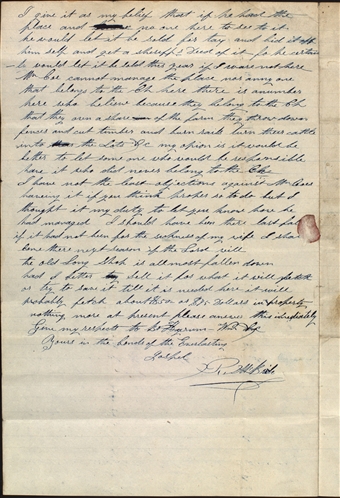 I give it as my belief that if he had the
place and no one here to see to it
he would let it be sold for tax and bid it off
him self and get a sheriffs Deed of it for he certain
would let it be sold this year if I was not here
Mr Coe cannot manage the place nor any one
that belongs to the Ch here there is a number
here who believe because they belong to the Ch
that they own a share of the farm they throw down
fences and cut timber and burn rails turn there cattle
into the Lots &c my opion is it would be
better to let some one who would be responsible
have it who did never belong to the
I have not the least objections against Mr Coes
having it if you think proper so to do but I
thought it my duty to let you know how he
had managed I should have been there last fall
if it had not been for the sickness of my wife I shall
come there next season if the Lord will
the old Long Shop is all most fallen down
had I better sell it for what it will fetch
or try to save it till it is needed here it will
probably fetch about or Dollars in property
nothing more at present please answer this imediately
Give my respects to Br Hyrum
Yours in the bonds of the Everlasting
Gospel